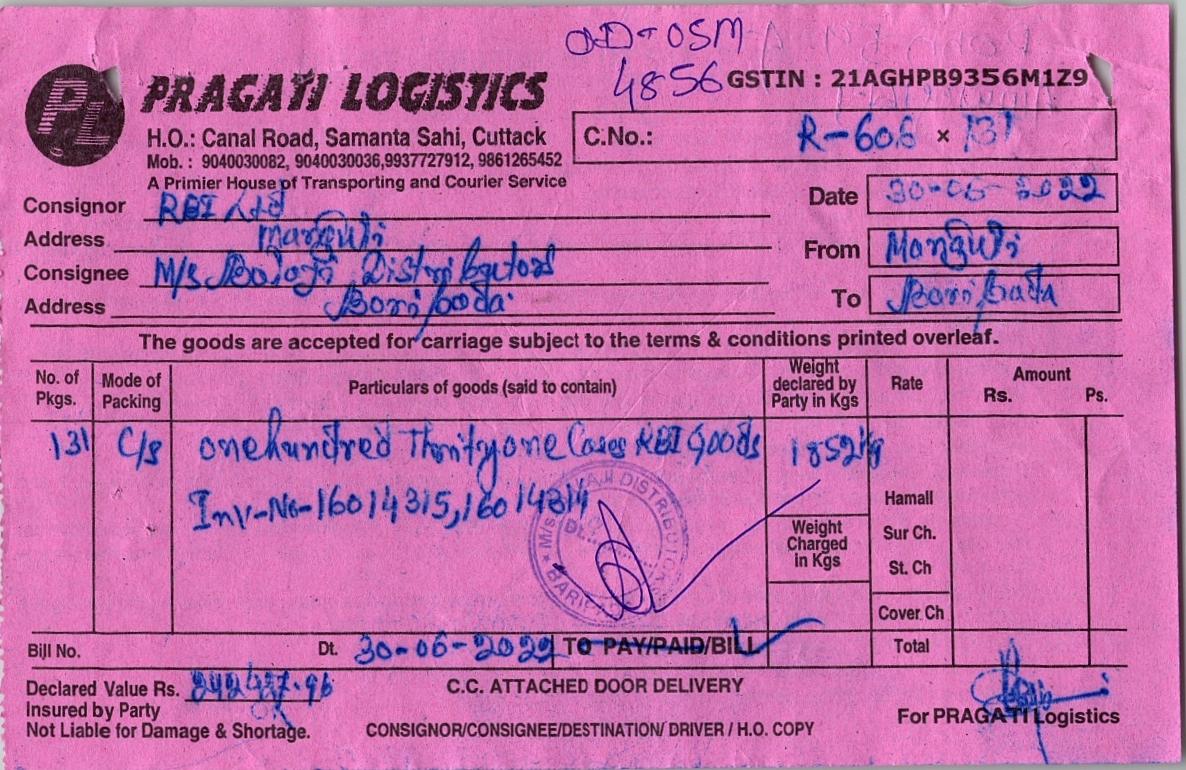 OD-OSM
4856 GSTIN : 21AGHPB9356M1Z9
PL PRAGATI LOGISTICS
H.O.: Canal Road, Samanta Sahi, Cuttack
Mob. : 9040030082, 9040030036,9937727912, 9861265452
A Primier House of Transporting and Courier Service
C.No.: R-606 × 131
Date 30-06-2022
Consignor RBI Ltd
Address Manguli
From Manguli
Consignee M/s Balaji Distributors
Address Baripada
To Baripada
The goods are accepted for carriage subject to the terms & conditions printed overleaf.
No. of Pkgs. Mode of Packing Particulars of goods (said to contain) Weight declared by Party in Kgs Rate Amount Rs. Ps.
131 C/s one hundred Thrity one Cases RBI Goods 1852kg
Inv-No-16014315,16014314
M/s DISTRIBUTOR
Hamall
Weight Charged in Kgs
Sur Ch.
St. Ch
Cover Ch
Bill No. Dt. 30-06-2022 TO PAY/PAID/BILL Total
Declared Value Rs.
C.C. ATTACHED DOOR DELIVERY
Insured by Party
For PRAGATI Logistics
Not Liable for Damage & Shortage.
CONSIGNOR/CONSIGNEE/DESTINATION/ DRIVER / H.O. COPY